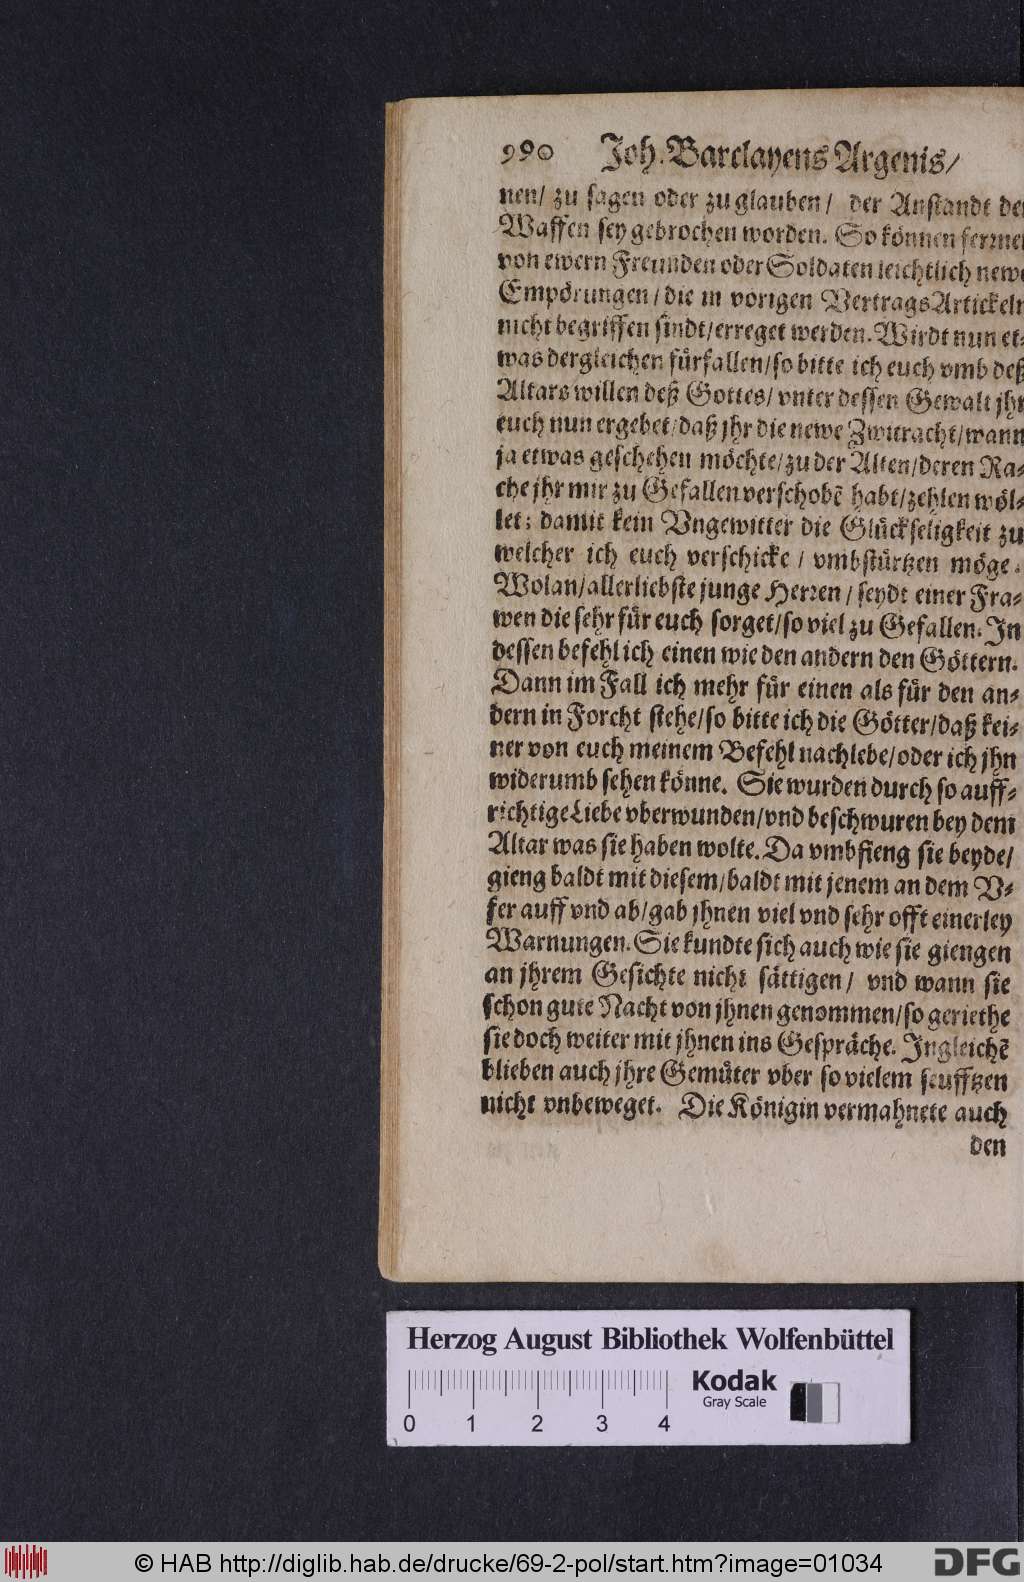 990 Joh. Barclayens Argenis/
nen/ zu sagen oder zu glauben/ der Anstandt der
Waffen sey gebrochen worden. So können ferrner
von ewern Freunden oder Soldaten leichtlich newe
Empörungen/ die in vorigen VertragsArtickeln
nicht begriffen sindt/ erreget werden. Wirdt nun et-
was dergleichen fürfallen/ so bitte ich euch vmb deß
Altars willen deß Gottes/ vnter dessen Gewalt jhr
euch nun ergebet/ daß jhr die newe Zwitracht/ wann
ja etwas geschehen möchte/ zu der Alten/ deren Ra-
che jhr mir zu Gefallen verschobẽ habt/ zehlen wöl-
let; damit kein Vngewitter die Glückseligkeit zu
welcher ich euch verschicke/ vmbstürtzen möge.
Wolan/ allerliebste junge Herren/ seydt einer Fra-
wen die sehr für euch sorget/ so viel zu Gefallen. In
dessen befehl ich einen wie den andern den Göttern.
Dann im Fall ich mehr für einen als für den an-
dern in Forcht stehe/ so bitte ich die Götter/ daß kei-
ner von euch meinem Befehl nachlebe/ oder ich jhn
widerumb sehen könne. Sie wurden durch so auff-
richtige Liebe vberwunden/ vnd beschwuren bey dem
Altar was sie haben wolte. Da vmbfieng sie beyde/
gieng baldt mit diesem/ baldt mit jenem an dem V-
fer auff vnd ab/ gab jhnen viel vnd sehr offt einerley
Warnungen. Sie kundte sich auch wie sie giengen
an jhrem Gesichte nicht sättigen/ vnd wann sie
schon gute Nacht von jhnen genommen/ so geriethe
sie doch weiter mit jhnen ins Gespräche. Ingleichẽ
blieben auch jhre Gemüter vber so vielem seufftzen
nicht vnbeweget. Die Königin vermahnete auch
den
Herzog August Bibliothek Wolfenbüttel
0 1 2 3 4
Kodak
Gray Scale
© HAB http://diglib.hab.de/drucke/69-2-pol/start.htm?image=01034
DFG